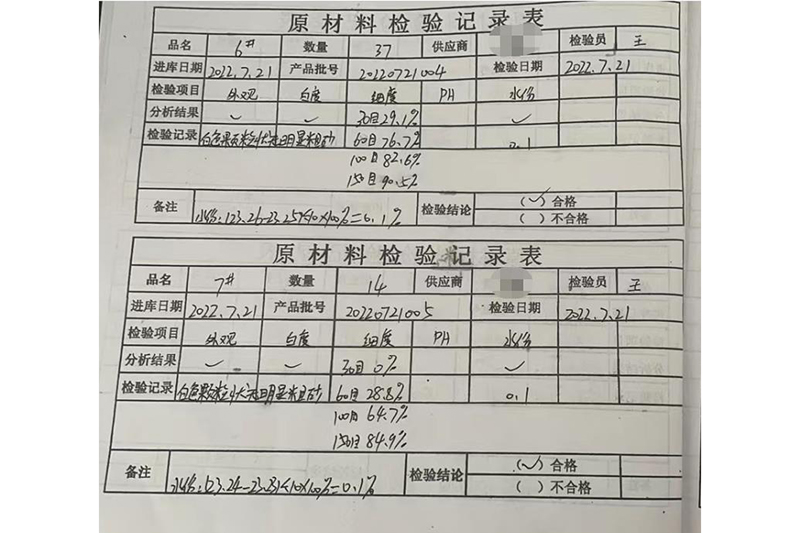 原材料检验记录表
品名 6# 数量 37 供应商 检验员 王
进库日期 2022.7.21 产品批号 20220721004 检验日期 2022.7.21
检验项目 外观 白度 细度 PH 水份
分析结果 ✓ ✓ 30目29.1% ✓
检验记录 白色颗粒状无明显粗砂 60目76.7% 0.1
100目82.6%
150目90.5%
备注 水份:(23.26-23.25)×10×100%=0.1% 检验结论 (✓)合格
( )不合格
原材料检验记录表
品名 7# 数量 14 供应商 检验员 王
进库日期 2022.7.21 产品批号 20220721005 检验日期 2022.7.21
检验项目 外观 白度 细度 PH 水份
分析结果 ✓ ✓ 30目0% ✓
检验记录 白色颗粒状无明显粗砂 60目28.8% 0.1
100目64.7%
150目84.9%
备注 水份:(23.24-23.23)×10×100%=0.1% 检验结论 (✓)合格
( )不合格